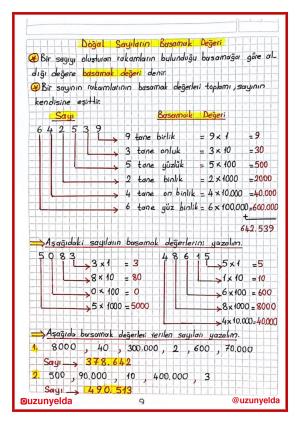 Doğal Sayıların Basamak Değeri
Bir sayıyı oluşturan rakamların bulunduğu basamağa göre al-
dığı değere basamak değeri denir.
Bir sayının rakamlarının basamak değerleri toplamı, sayının
kendisine eşittir.
Sayı Basamak Değeri
6 4 2 5 3 9
9 tane birlik = 9 x 1 = 9
3 tane onluk = 3 x 10 = 30
5 tane yüzlük = 5 x 100 = 500
2 tane binlik = 2 x 1000 = 2000
4 tane on binlik = 4 x 10.000 = 40.000
6 tane yüz binlik = 6 x 100.000 = 600.000
+
642.539
Aşağıdaki sayıların basamak değerlerini yazalım.
5 0 8 3
3 x 1 = 3
8 x 10 = 80
0 x 100 = 0
5 x 1000 = 5000
4 8 6 1 5
5 x 1 = 5
1 x 10 = 10
6 x 100 = 600
8 x 1000 = 8000
4 x 10.000 = 40000
Aşağıda basamak değerleri verilen sayıları yazalım.
1. 8000 , 40 , 300.000 , 2 , 600 , 70.000
Sayı 378.642
2. 500 , 90.000 , 10 , 400.000 , 3
Sayı 490.513
@uzunyelda 9 @uzunyelda